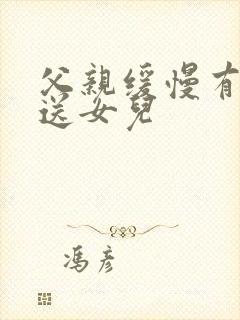 父親緩慢有
送女兒
馮彦